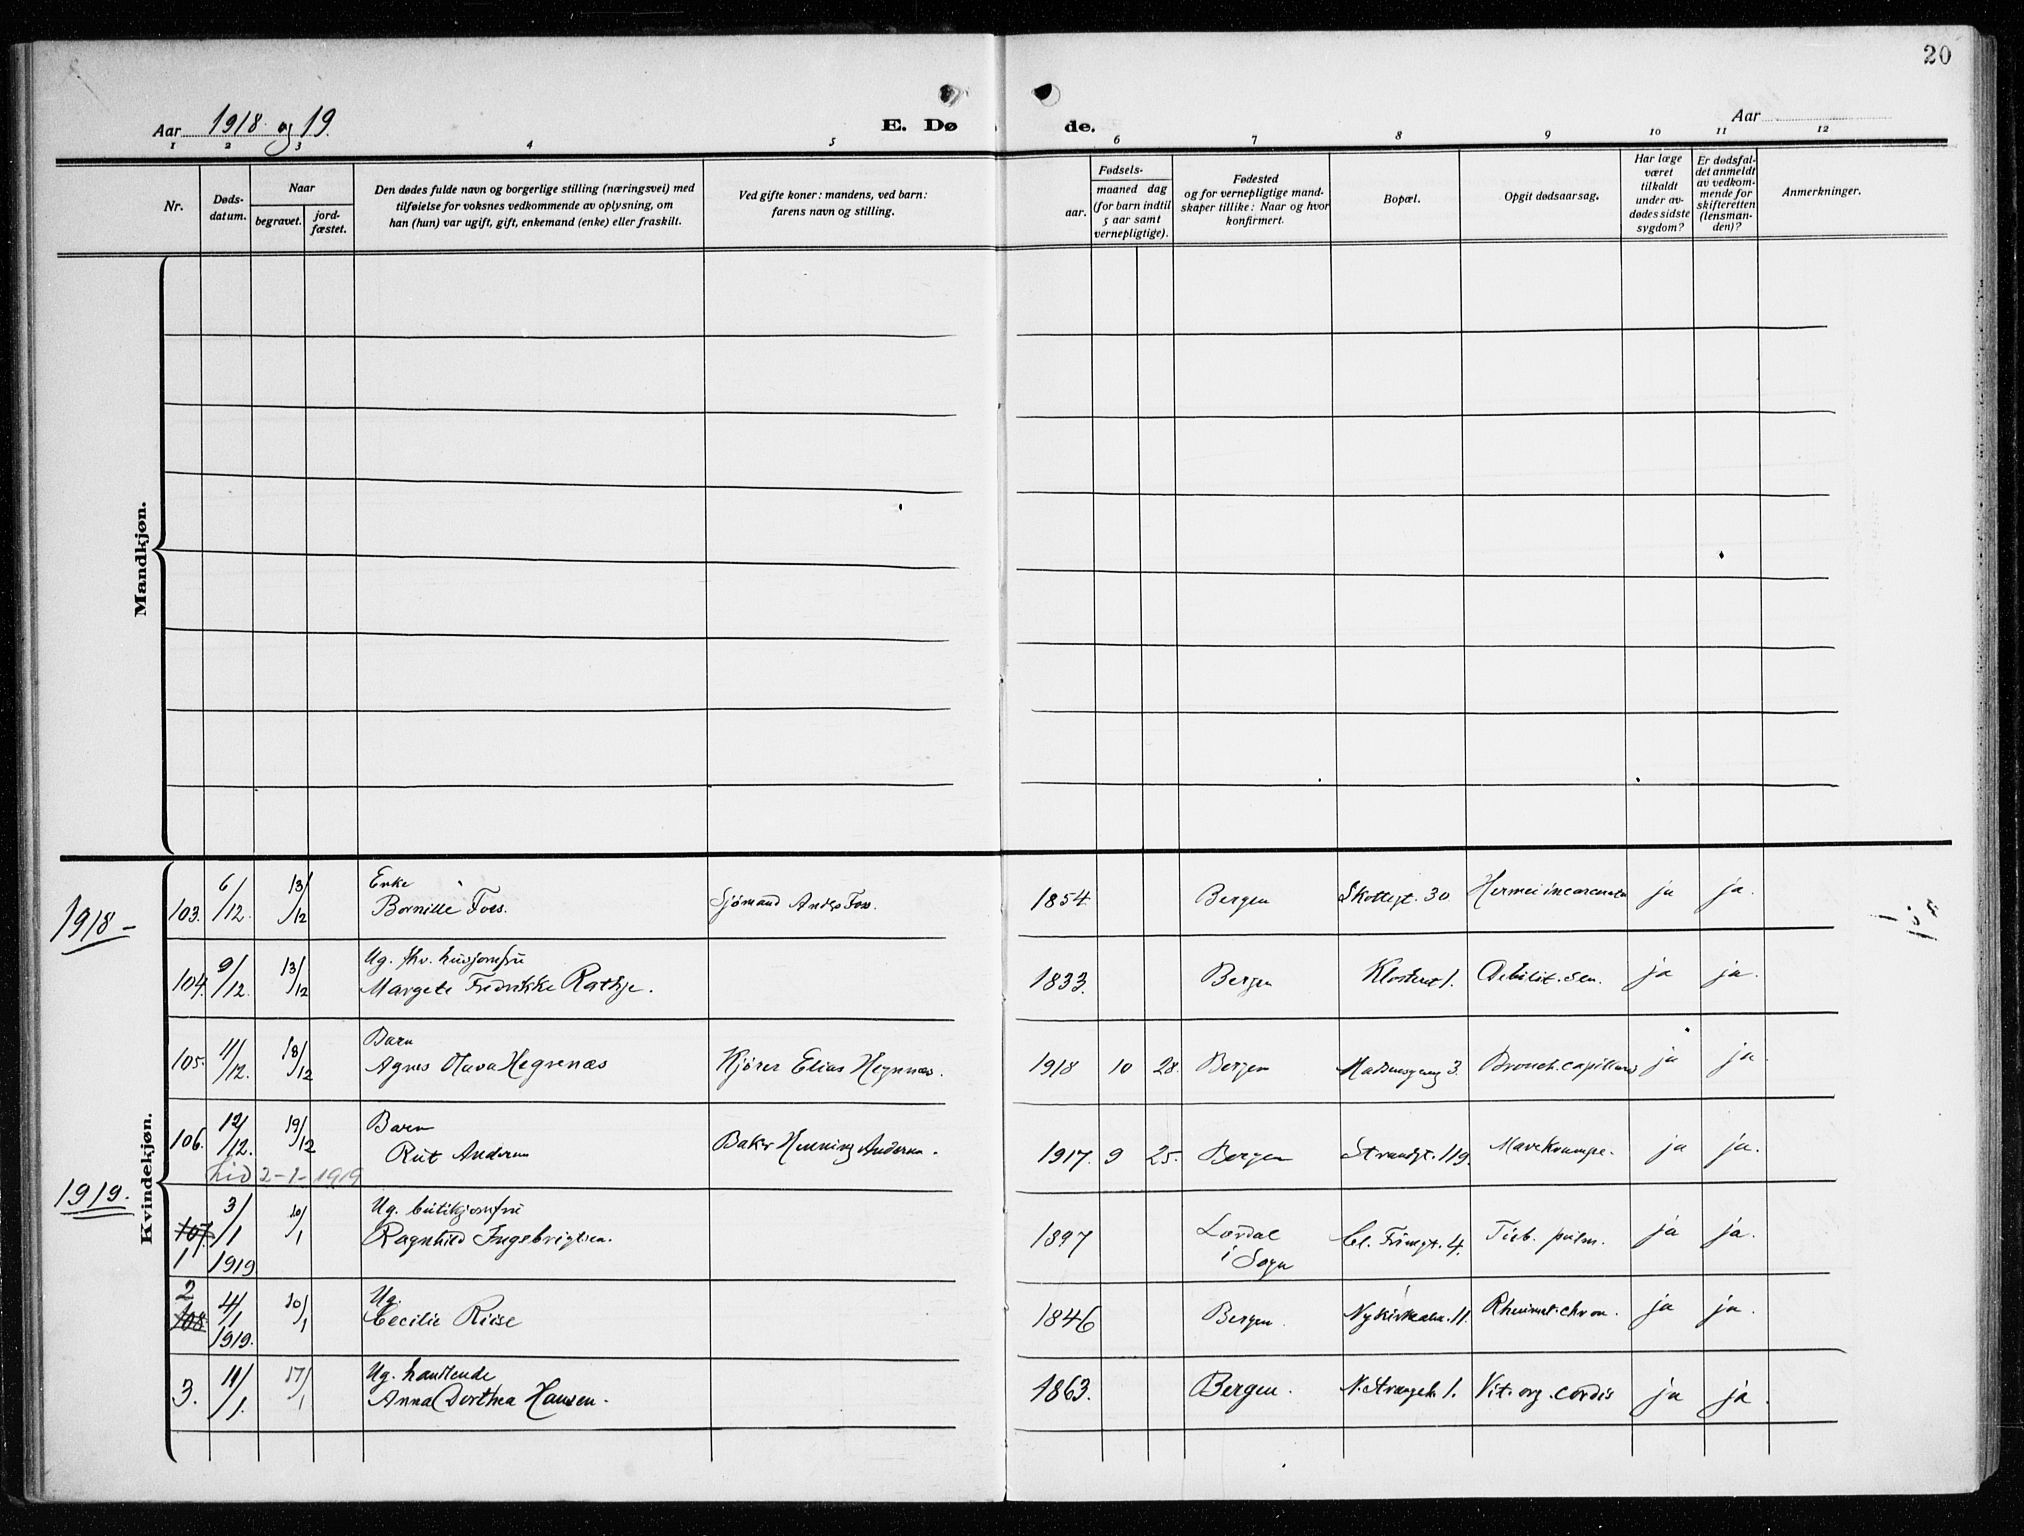 20
Aar 1918 og 19.
E. Dø de.
Aar
1 2 3 4 5 6 7 8 9 10 11 12
Nr.
Døds-
datum.
Naar
begravet.
jord-
fæstet.
Den dødes fulde navn og borgerlige stilling (næringsvei) med
tilføielse for voksnes vedkommende av oplysning, om
han (hun) var ugift, gift, enkemand (enke) eller fraskilt.
Ved gifte koner: mandens, ved barn:
farens navn og stilling.
Fødsels-
aar.
maaned dag
(for barn indtil
5 aar samt
vernepligtige).
Fødested
og for vernepligtige mand-
skaper tillike: Naar og hvor
konfirmert.
Bopæl.
Opgit dødsaarsag.
Har læge
været
tilkaldt
under av-
dødes sidste
sygdom?
Er dødsfal-
det anmeldt
av vedkom-
mende for
skifteretten
(lensman-
den)?
Anmerkninger.
Mandkjøn.
Kvindekjøn.
1918 -
Enke
103. 6/12. 13/12 Bornille Foss. Sjømand Anders Foss. 1854 Bergen Skottegt. 30 ja ja.
Ug. fhv. husjomfru
104. 9/12. 13/12 Margete Fredrikke Rathje. 1833. Bergen Klosteret 1. Debilit. sen. ja ja.
Barn
105. 11/12. 18/12 Agnes Olava Hegrenæs Kjører Elias Hegrenæs. 1918 10 28. Bergen 3. Bronch. capillaris ja ja.
Barn
106. 12/12. 19/12 Rut Andersen Baker Henning Andersen. 1917. 9 25. Bergen Strandgt. 119. Mavekrampe. ja ja.
2-1-1919
1919.
Ug. butikjomfru
107. 3/1 10/1 Ragnhild Ingebrigtsen. 1897 Lærdal
i Sogn Tub. pulm. ja ja.
1 1919
2 Ug.
108 4/1 10/1 Cecilie Riise 1846 Bergen. Nykirkealm. 11. Rheumat. chron. ja ja.
1919.
Ug. handlende
3. 11/1. 17/1 Anna Dorthea Hansen. 1863. Bergen. 1. Vit. org. cordis ja ja.